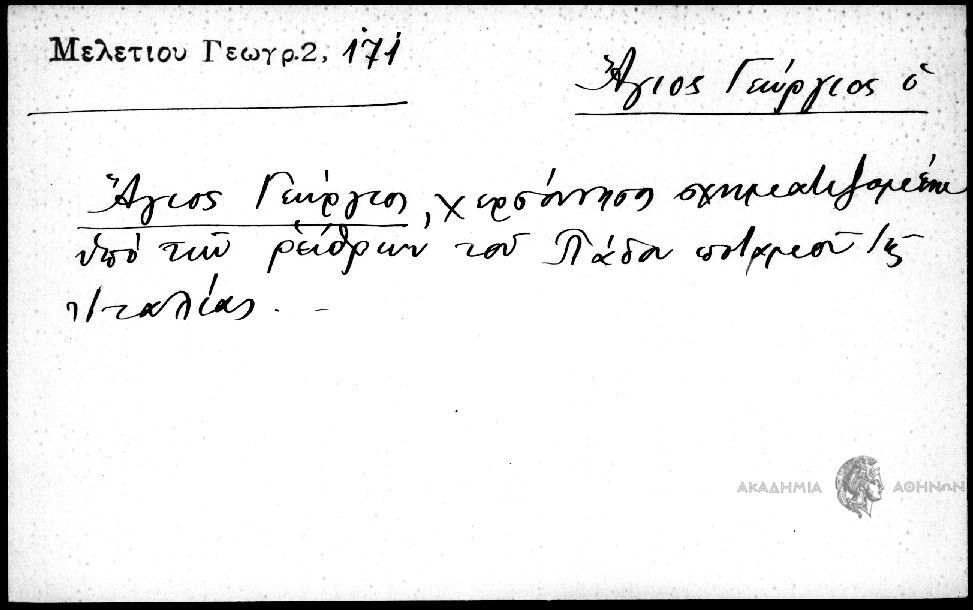 Μελετιου Γεωγρ.2, 171
Ἅγιος Γεώργιος ὁ
Ἅγιος Γεώργιος, χερσόνησος σχηματιζομένη
ὑπὸ τῶν ῥείθρων τοῦ Πάδου ποταμοῦ
Ἰταλίας. –
ΑΚΑΔΗΜΙΑ ΑΘΗΝΩΝ